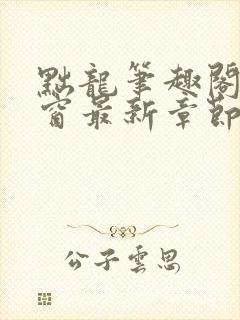 點龍筆趣閣
窗最新章節
公子雲思